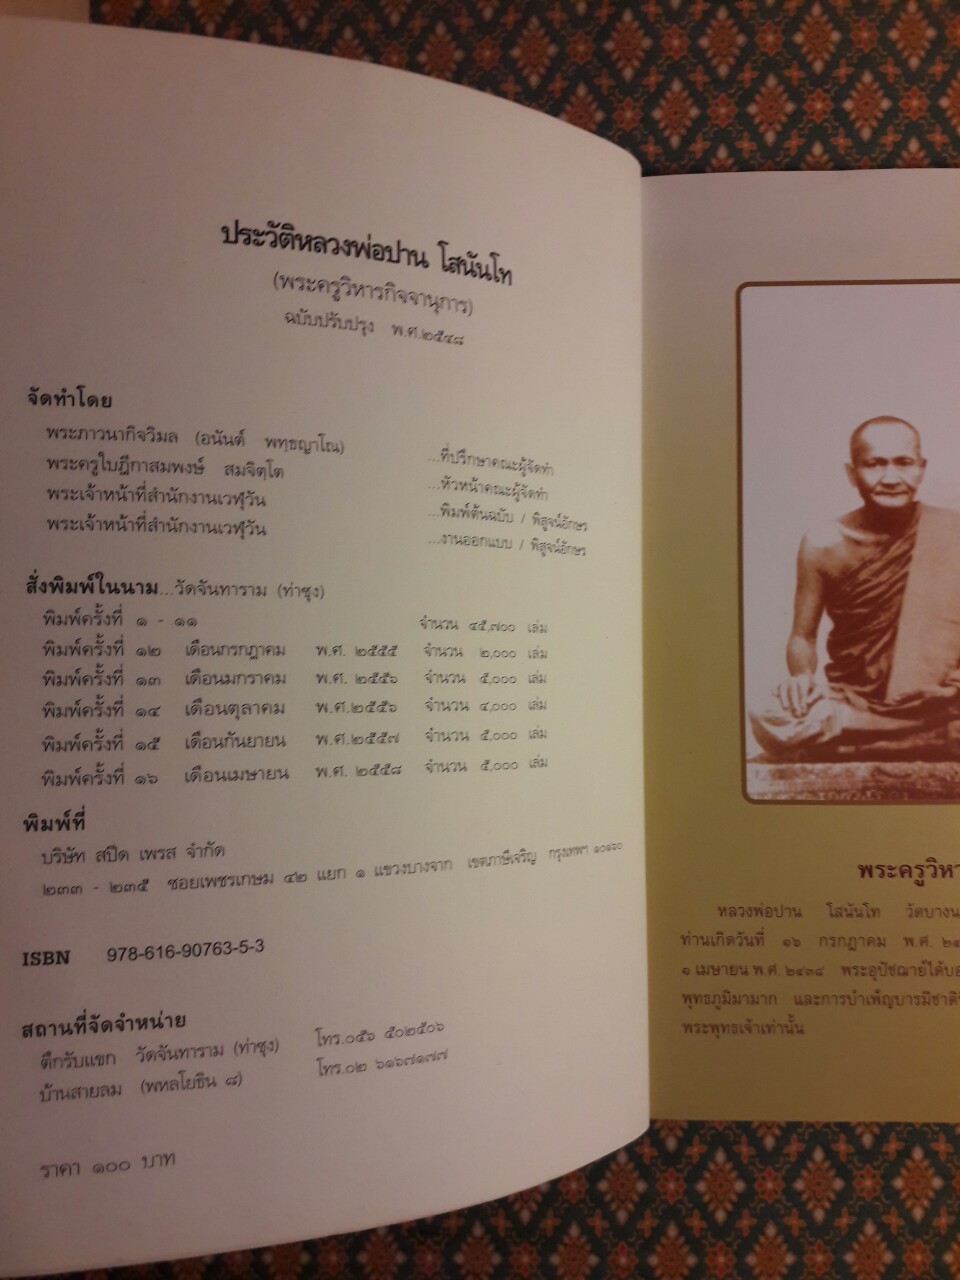 ประวัติหลวงพ่อปาน โสนันโท
(พระครูวิหารกิจจานุการ)
ฉบับปรับปรุง พ.ศ.๒๕๔๘
จัดทำโดย
พระภาวนากิจวิมล (อนันต์ พทฺธญาโณ) ...ที่ปรึกษาคณะผู้จัดทำ
พระครูใบฎีกาสมพงษ์ สมจิตฺโต ...หัวหน้าคณะผู้จัดทำ
พระเจ้าหน้าที่สำนักงานเวฬุวัน ...พิมพ์ต้นฉบับ / พิสูจน์อักษร
พระเจ้าหน้าที่สำนักงานเวฬุวัน ...งานออกแบบ / พิสูจน์อักษร
สั่งพิมพ์ในนาม...วัดจันทาราม (ท่าซุง)
พิมพ์ครั้งที่ ๑ - ๑๑ จำนวน ๔๕,๗๐๐ เล่ม
พิมพ์ครั้งที่ ๑๒ เดือนกรกฎาคม พ.ศ. ๒๕๕๕ จำนวน ๒,๐๐๐ เล่ม
พิมพ์ครั้งที่ ๑๓ เดือนมกราคม พ.ศ. ๒๕๕๖ จำนวน ๕,๐๐๐ เล่ม
พิมพ์ครั้งที่ ๑๔ เดือนตุลาคม พ.ศ.๒๕๕๖ จำนวน ๔,๐๐๐ เล่ม
พิมพ์ครั้งที่ ๑๕ เดือนกันยายน พ.ศ.๒๕๕๗ จำนวน ๕,๐๐๐ เล่ม
พิมพ์ครั้งที่ ๑๖ เดือนเมษายน พ.ศ. ๒๕๕๘ จำนวน ๕,๐๐๐ เล่ม
พิมพ์ที่
บริษัท สปีด เพรส จำกัด
๒๓๓ - ๒๓๕ ซอยเพชรเกษม ๔๒ แยก ๑ แขวงบางจาก เขตภาษีเจริญ กรุงเทพฯ ๑๐๑๖๐
ISBN 978-616-90763-5-3
สถานที่จัดจำหน่าย
ตึกรับแขก วัดจันทาราม (ท่าซุง) โทร.๐๕๖ ๕๐๒๕๐๖
บ้านสายลม (พหลโยธิน ๘) โทร.๐๒ ๖๑๖๗๑๗๗
ราคา ๑๐๐ บาท
พระครูวิหา
หลวงพ่อปาน โสนันโท วัดบางน
ท่านเกิดวันที่ ๑๖ กรกฎาคม พ.ศ.
๑ เมษายน พ.ศ. ๒๔๓๘ พระอุปัชฌาย์ได้บอ
พุทธภูมิมามาก และการบำเพ็ญบารมีชาติ
พระพุทธเจ้าเท่านั้น